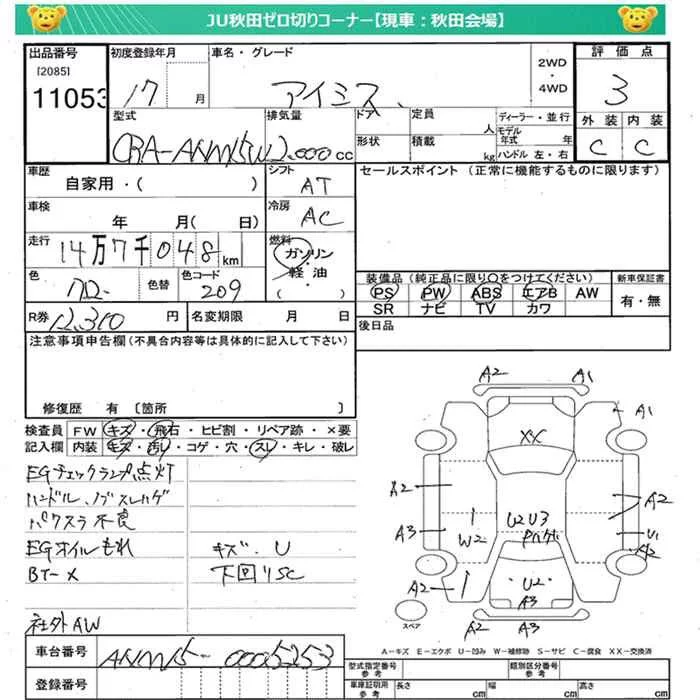 JU秋田ゼロ切りコーナー【現車：秋田会場】
出品番号 初度登録年月 車名・グレード 2WD ・ 4WD 評価点
[2085]
11053 17 月 アイミス 3
型式 排気量 ドア 定員 人 ディーラー・並行 外装 内装
CBA-ANM15W 2.000cc 形状 積載 kg モデル年式 年 ハンドル 左・右 C C
車歴 シフト セールスポイント（正常に機能するものに限ります）
自家用・（ ） AT
車検 冷房
年 月（ 日） AC
走行 燃料
14万7千048km ガソリン・軽油（ ）
色 色替 色コード 装備品（純正品に限り○をつけてください） 新車保証書
クロ 209 PS PW ABS エアB AW 有・無
SR ナビ TV カワ
R券 12,310円 名変期限 月 日 後日品
注意事項申告欄（不具合内容等は具体的に記入して下さい）
修復歴 有 〔箇所 〕
検査員 FW キズ・飛石・ヒビ割・リペア跡・×要
記入欄 内装 キズ・汚れ・コゲ・穴・スレ・キレ・破レ
EGチェックランプ点灯
ハンドル、ノブスレハゲ
パワスラ不良
EGオイルもれ キズ.U
BT-× 下回りSC
社外AW
A2 A1
A1
XX
A2 A2
A3 W2 U2U3 U1
A2
A2 U2
A3
スペア A2 A3
A-キズ E-エクボ U-凹み W-補修跡 S-サビ C-腐食 XX-交換済
車台番号 ANM15-0005253
登録番号
型式指定番号 参考 類別区分番号 参考
車庫証明用 参考 長さ cm 幅 cm 高さ cm